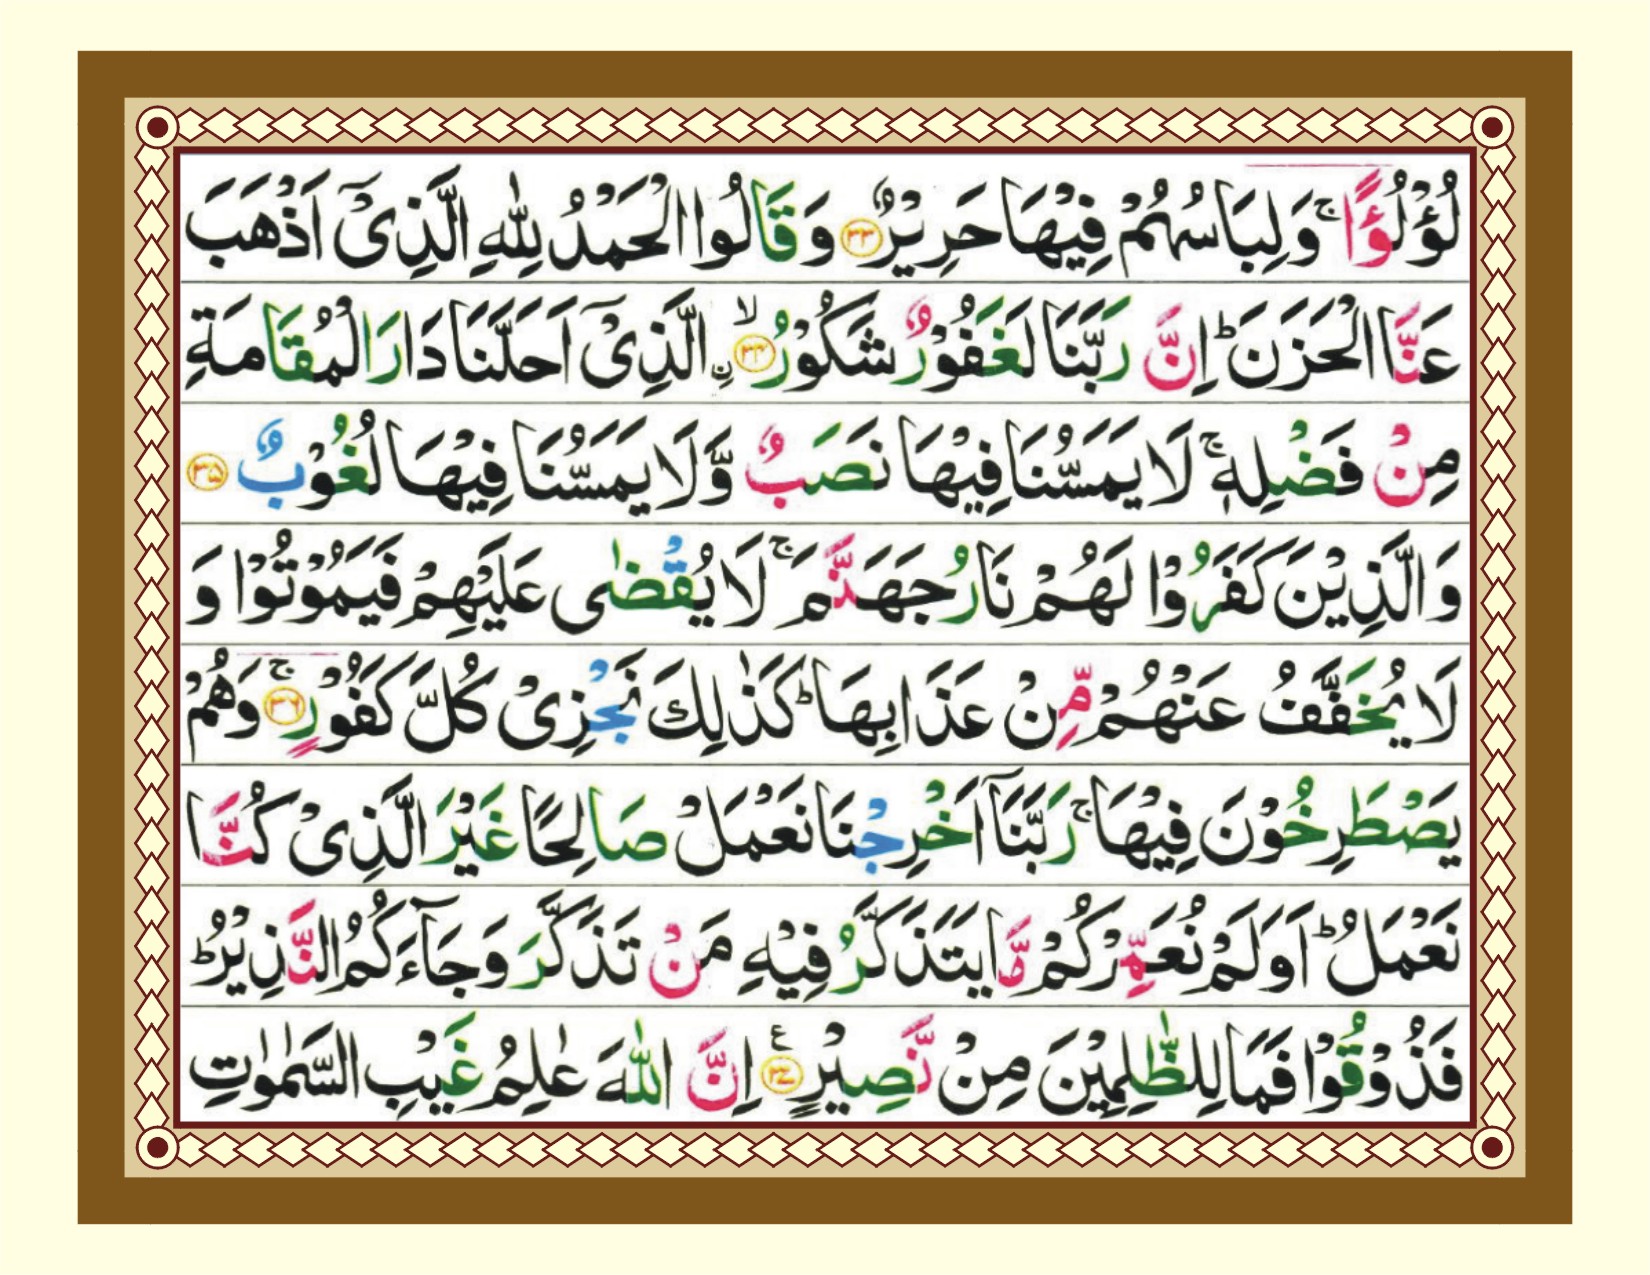 لُؤْلُؤًا ۚ وَلِبَاسُهُمْ فِيْهَا حَرِيْرٌ ﴿۳۳﴾ وَ قَالُوا الْحَمْدُ لِلّٰهِ الَّذِىْۤ اَذْهَبَ
عَنَّا الْحَزَنَ ؕ اِنَّ رَبَّنَا لَغَفُوْرٌ شَكُوْرُ ﴿۳۴﴾ ۙ نِ الَّذِىْۤ اَحَلَّنَا دَارَ الْمُقَامَةِ
مِنْ فَضْلِهٖ ۚ لَا يَمَسُّنَا فِيْهَا نَصَبٌ وَّلَا يَمَسُّنَا فِيْهَا لُغُوْبٌ ﴿۳۵﴾
وَالَّذِيْنَ كَفَرُوْا لَهُمْ نَارُ جَهَنَّمَ ۚ لَا يُقْضٰى عَلَيْهِمْ فَيَمُوْتُوْا وَ
لَا يُخَفَّفُ عَنْهُمْ مِّنْ عَذَابِهَا ؕ كَذٰلِكَ نَجْزِىْ كُلَّ كَفُوْرٍ ﴿۳۶﴾ ۚ وَهُمْ
يَصْطَرِخُوْنَ فِيْهَا ۚ رَبَّنَاۤ اَخْرِجْنَا نَعْمَلْ صَالِحًا غَيْرَ الَّذِىْ كُنَّا
نَعْمَلُ ؕ اَوَلَمْ نُعَمِّرْكُمْ مَّا يَتَذَكَّرُ فِيْهِ مَنْ تَذَكَّرَ وَجَآءَكُمُ النَّذِيْرُ ؕ
فَذُوْقُوْا فَمَا لِلظّٰلِمِيْنَ مِنْ نَّصِيْرٍ ﴿۳۷﴾ ع اِنَّ اللّٰهَ عٰلِمُ غَيْبِ السَّمٰوٰتِ